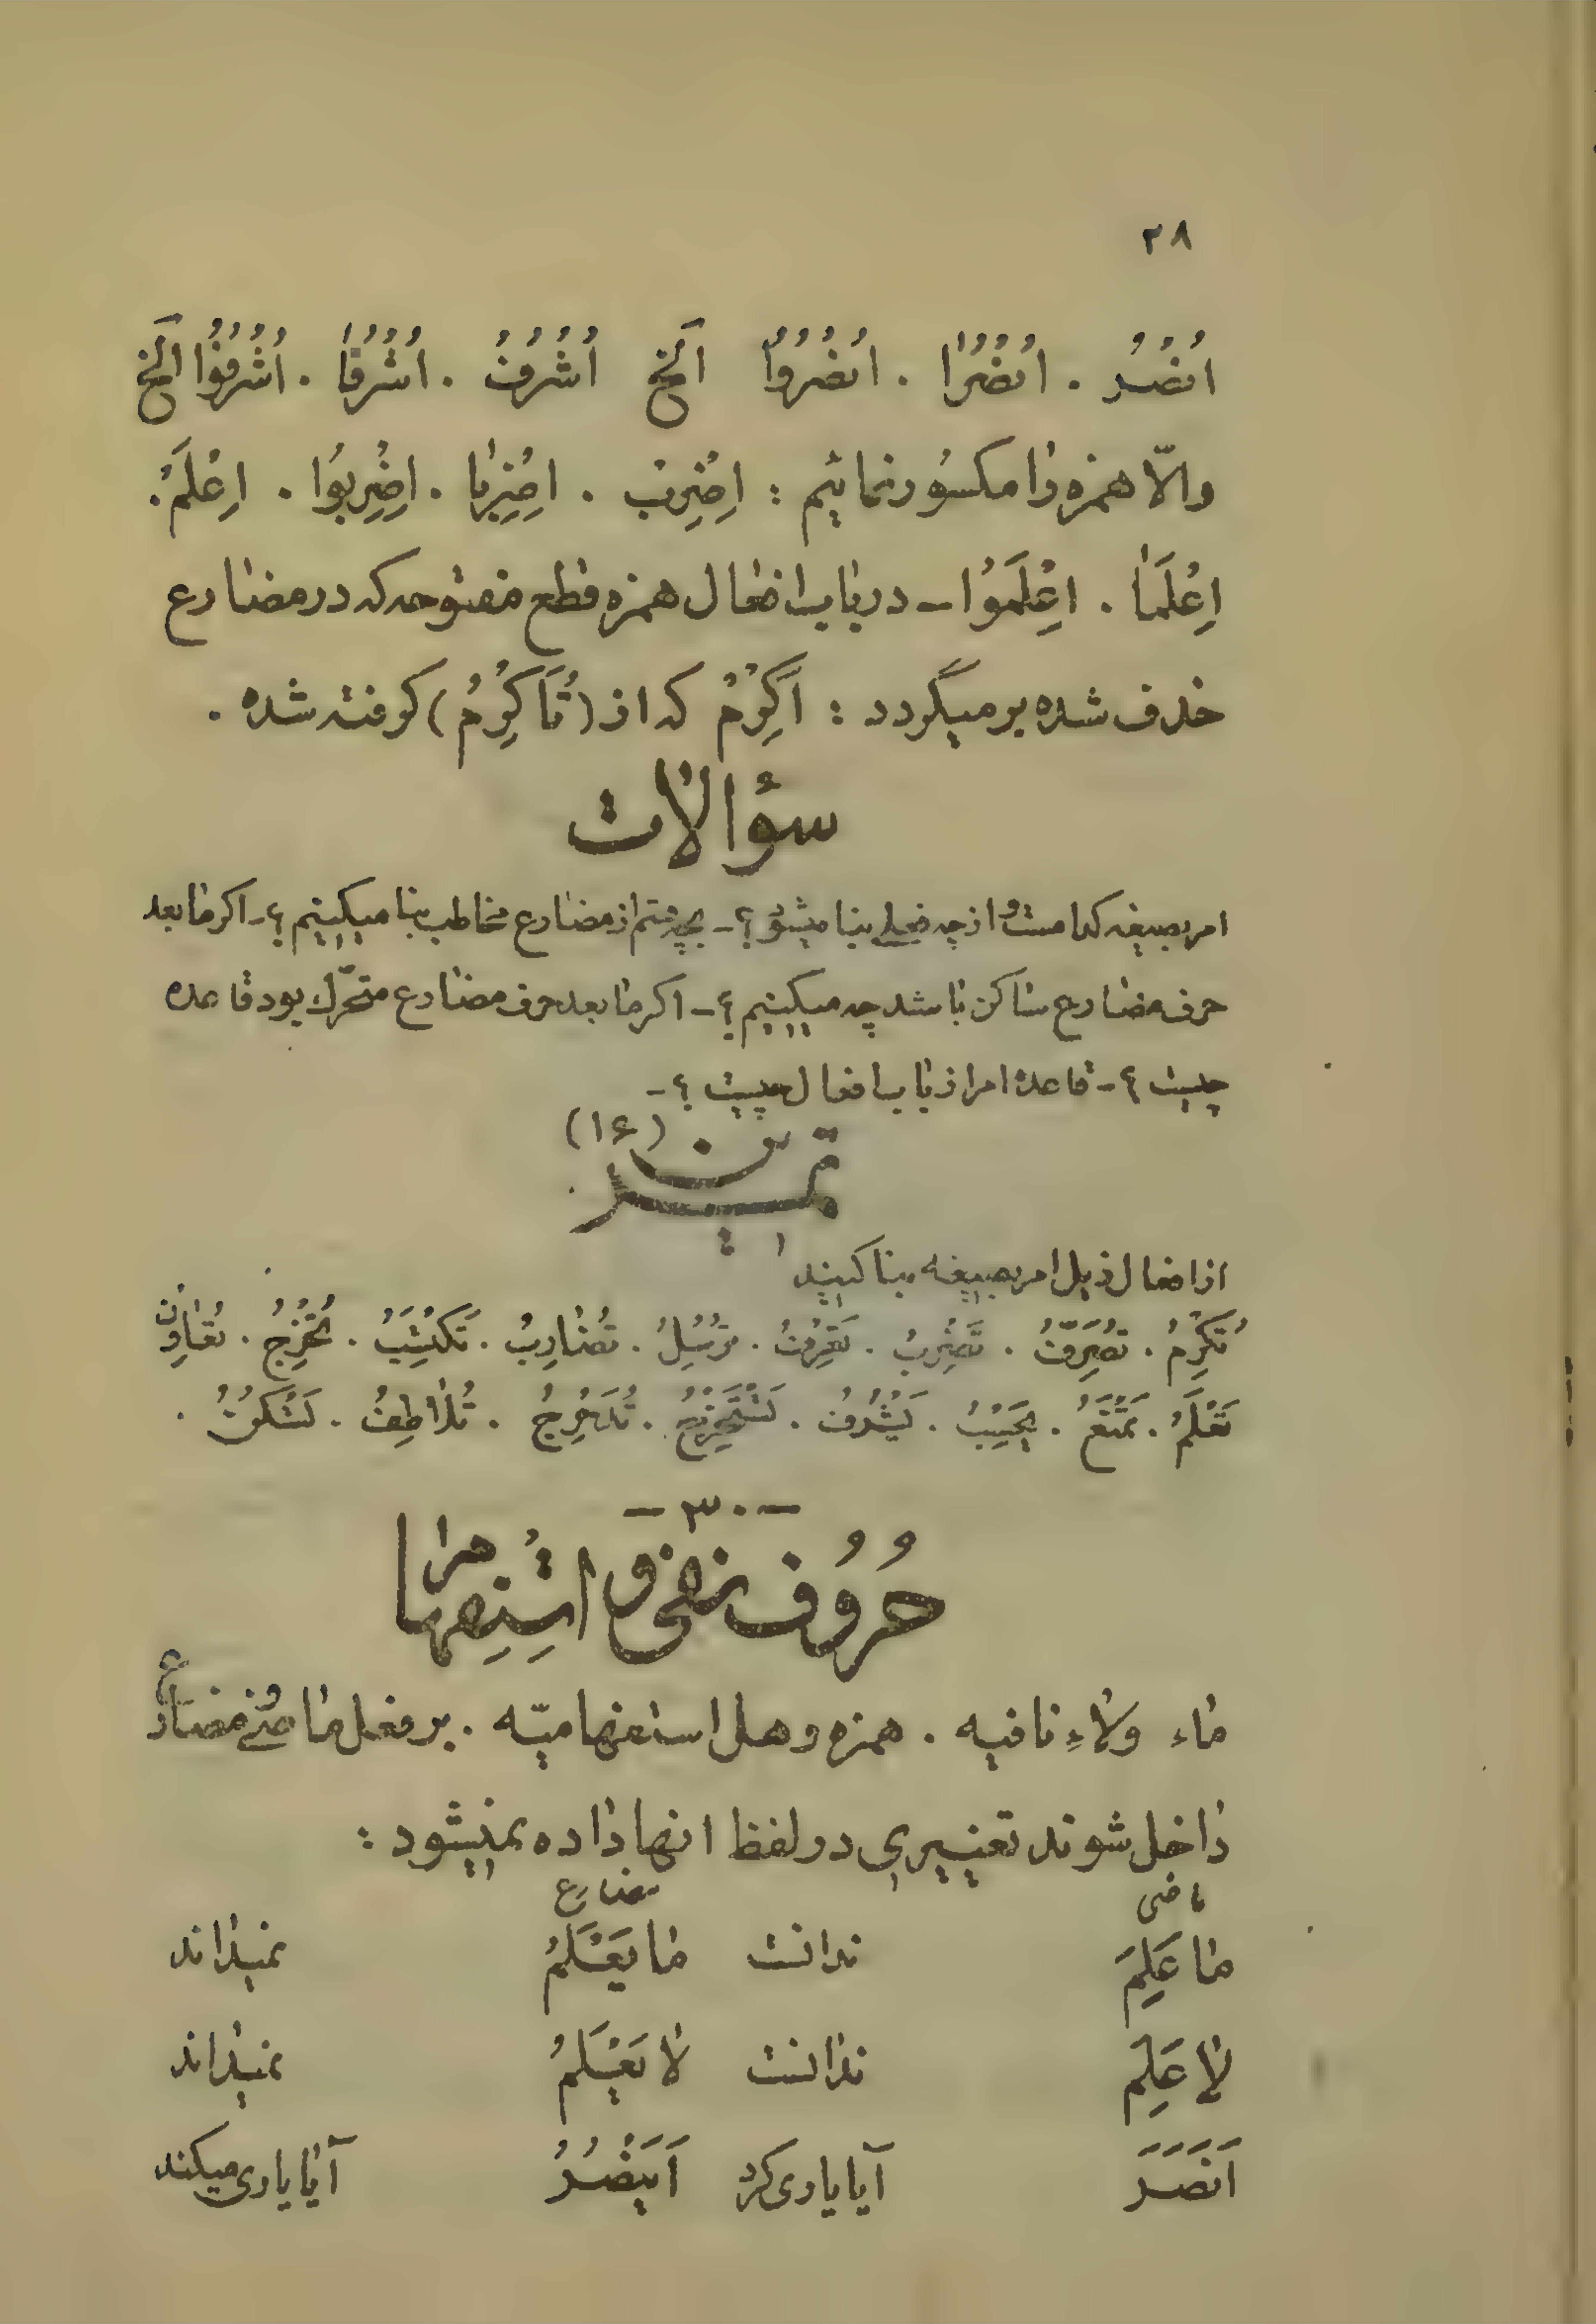 ٢٨
اُنْصُرْ . اُنْصُرٰا . اُنْصُرُوٰا اَلَخ اُشْرُفْ . اُشْرُفٰا . اُشْرُفُوٰا الَخ
والّا همزه را مكسُور نمائيم : اِضْرِبْ . اِضْرِبٰا . اِضْرِبُوا . اِعْلَمْ .
اِعْلَمٰا . اِعْلَمُوٰا – در باب افعال همزه قطع مفتوحه كه در مضارع
حذف شده برميگردد : اَكْرِمْ كه از (تُاَكْرِمُ) گرفته شده .
سؤالات
امر بصيغه كدامست و از چه فعلى بنا ميشود ؟ – بچه قسم از مضارع مخاطب بنا ميكنيم ؟ – اكر ما بعد
حرف مضارع ساكن باشد چه ميكنيم ؟ – اكر ما بعد حرف مضارع متحرّك بود قاعده
چيست ؟ – قاعده امر از باب افعال چيست ؟ –
تمرين (١۶)
از افعال ذيل امر بصيغه بنا كنيد
تُكْرِمُ . تُصَرِّفُ . تَضْرِبُ . تَعْرِفُ . تُرْسِلُ . تُضٰارِبُ . تَكْتَسِبُ . تُخْرِجُ . تُعٰاوِنُ
تَعْلَمُ . تَمْنَعُ . تَحْسِبُ . تَشْرُفُ . تَسْتَخْرِجُ . تُدَحْرِجُ . تُلٰاطِفُ . تَسْكُتُ .
– ٣٠ –
حُرُوف نفى و استِفهام را
ماء ولاءِ نافيه . همزه و هل استفهاميّه . بر فعل ماضى و مضارع
داخل شوند تغييرى در لفظ انها داده نميشود :
ماضى مضارع
مٰا عَلِمَ ندانست مٰا يَعْلَمُ نميداند
لٰا عَلِمَ ندانست لا يَعْلَمُ نميداند
اَنَصَرَ آيا يارى كرد اَيَنْصُرُ آيا يارى ميكند